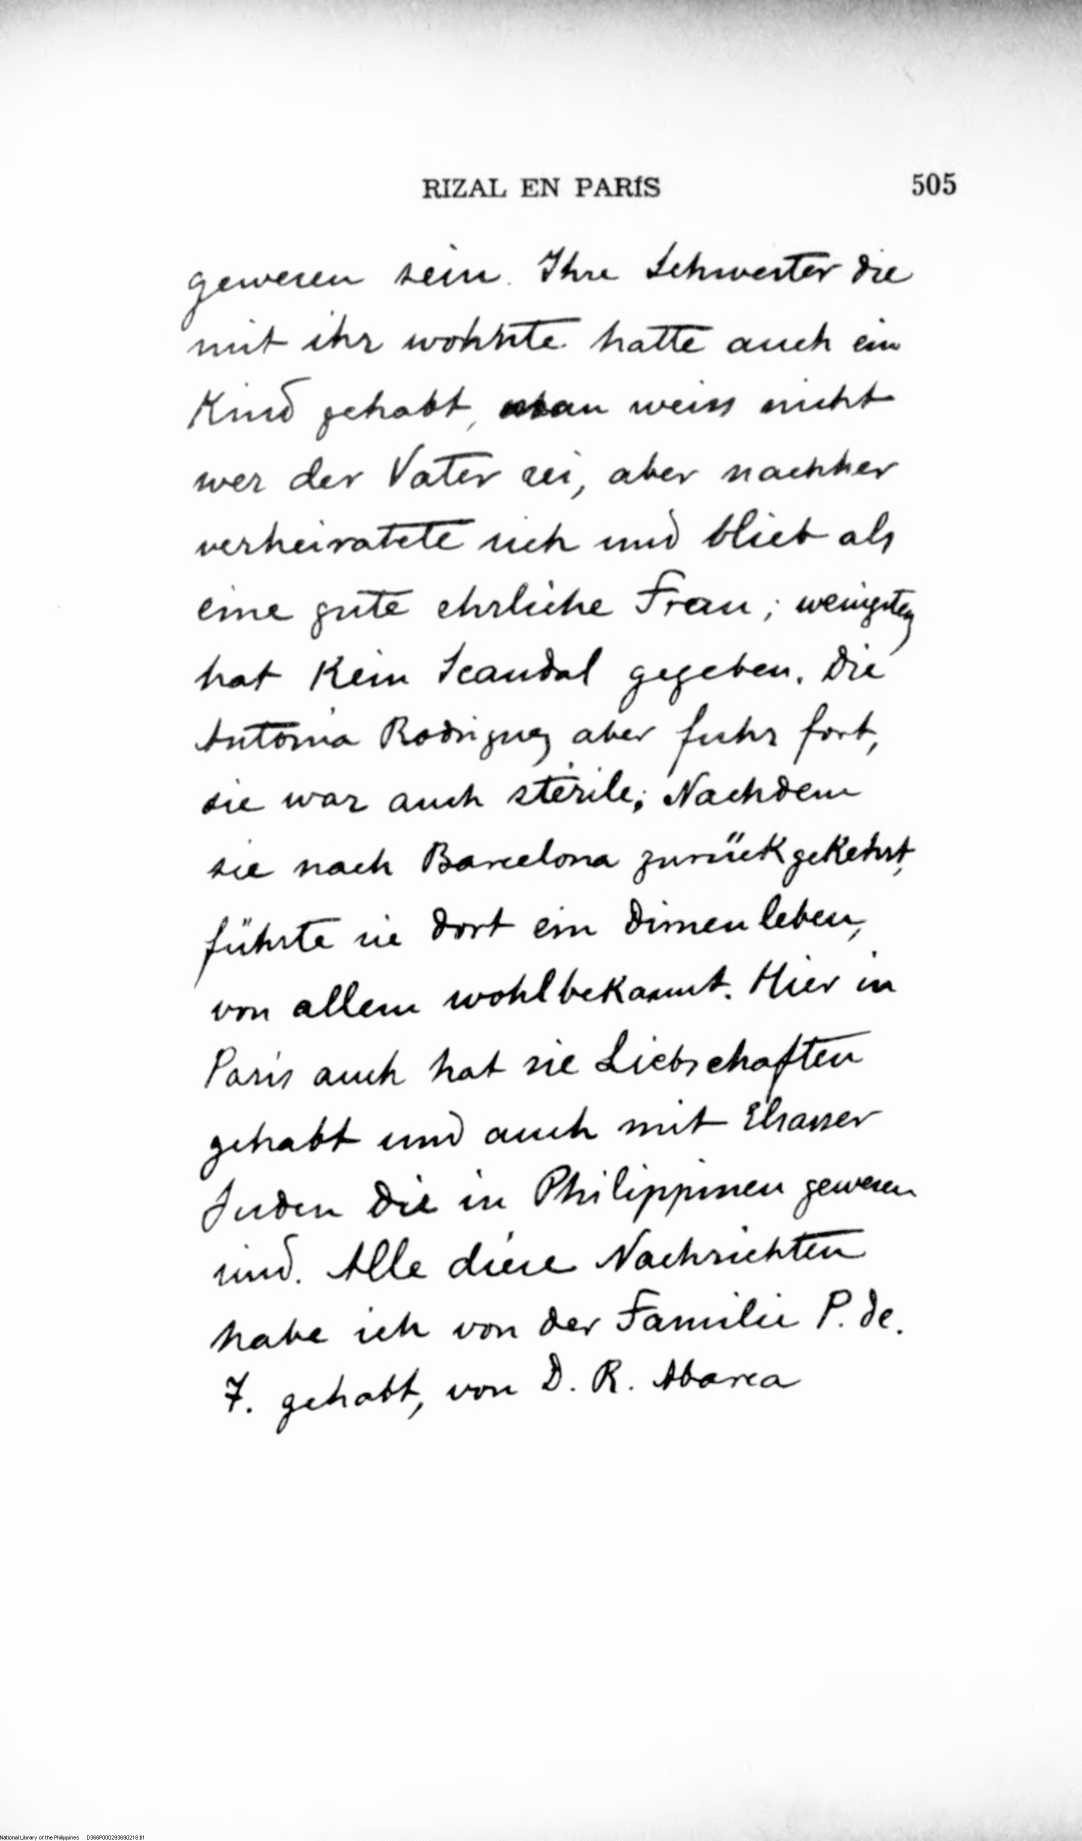 RIZAL EN PARÍS 505
gewesen sein. Ihre Schwester die
mit ihr wohnte hatte auch ein
Kind gehabt, man weiss nicht
wer der Vater sei, aber nachher
verheiratete sich und blieb als
eine gute ehrliche Frau; wenigsten
hat Kein Scandal gegeben. Die
Antonia Rodriguez aber fuhr fort,
sie war auch stérile; Nachdem
sie nach Barcelona zurückgeKehrt,
führte sie dort ein Dirnenleben,
von allem wohlbeKannt. Hier in
Paris auch hat sie Liebschaften
gehabt und auch mit Elsasser
Juden die in Philippinen gewesen
sind. Alle diese Nachrichten
habe ich von der Familie P. de.
T. gehabt, von D. R. Abarca
National Library of the Philippines